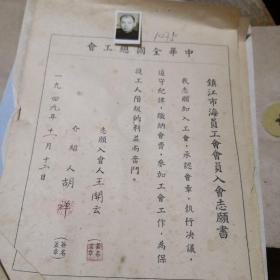 中華全國總工會
鎮江市海員工會會員入會志願書
我志願加入工會，承認會章，執行決議，
遵守紀律，繳納會費，參加工會工作，為保
護工人階級的利益而奮鬥。
志願入會人
介紹人 胡
簽名蓋章
簽名蓋章
一九四九年十一月十六日